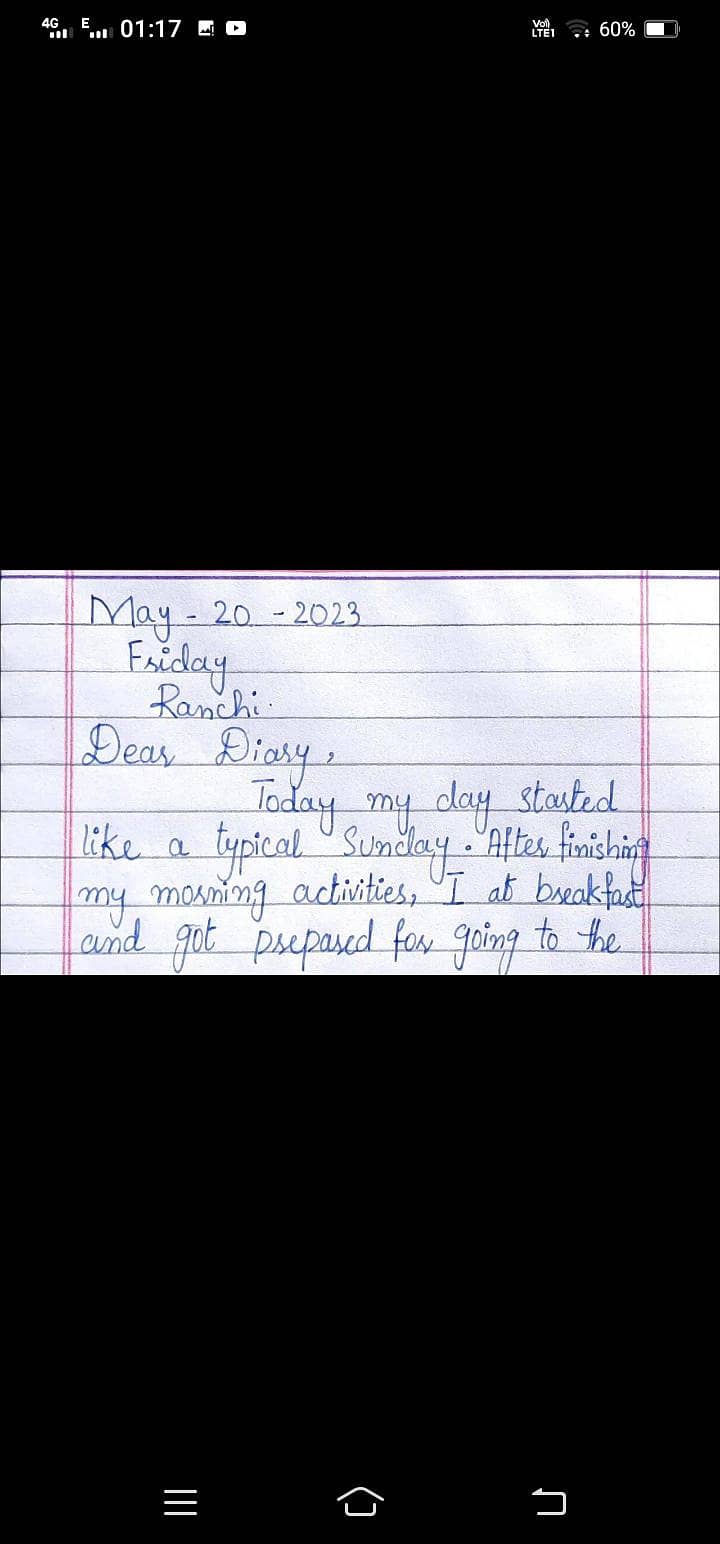 4G E 01:17 Vo) LTE1 60%
May - 20 - 2023
Friday
Ranchi.
Dear Diary,
Today my day started
like a typical Sunday. After finishing
my morning activities, I at breakfast
and got prepared for going to the